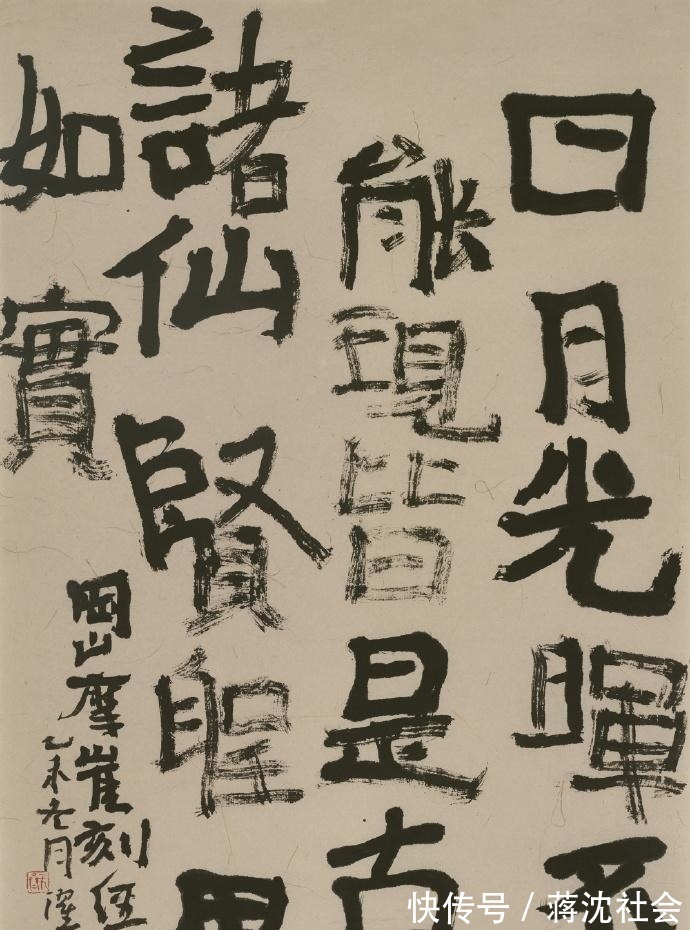 日月光暉不
能現皆是古
諸仙賢聖
如實
岡山摩崔刻經
乙未冬月
快传号 / 蒋沈社会